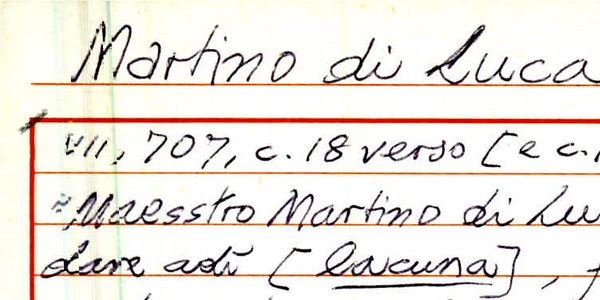 Martino di Luca
VII, 707, c. 18 verso [e c.
Maesstro Martino di Lu
dare adì [lacuna],